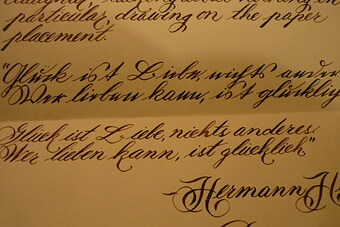 particular, drawing on the paper
placement.
"Glück ist Liebe, nichts ander
Wer lieben kann, ist glücklig
Glück ist Liebe, nichts anderes.
Wer lieben kann, ist gluecklich"
-Hermann H